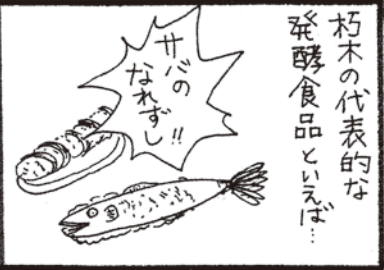 朽木の代表的な
発酵食品といえば…
サバの
なれずし!!